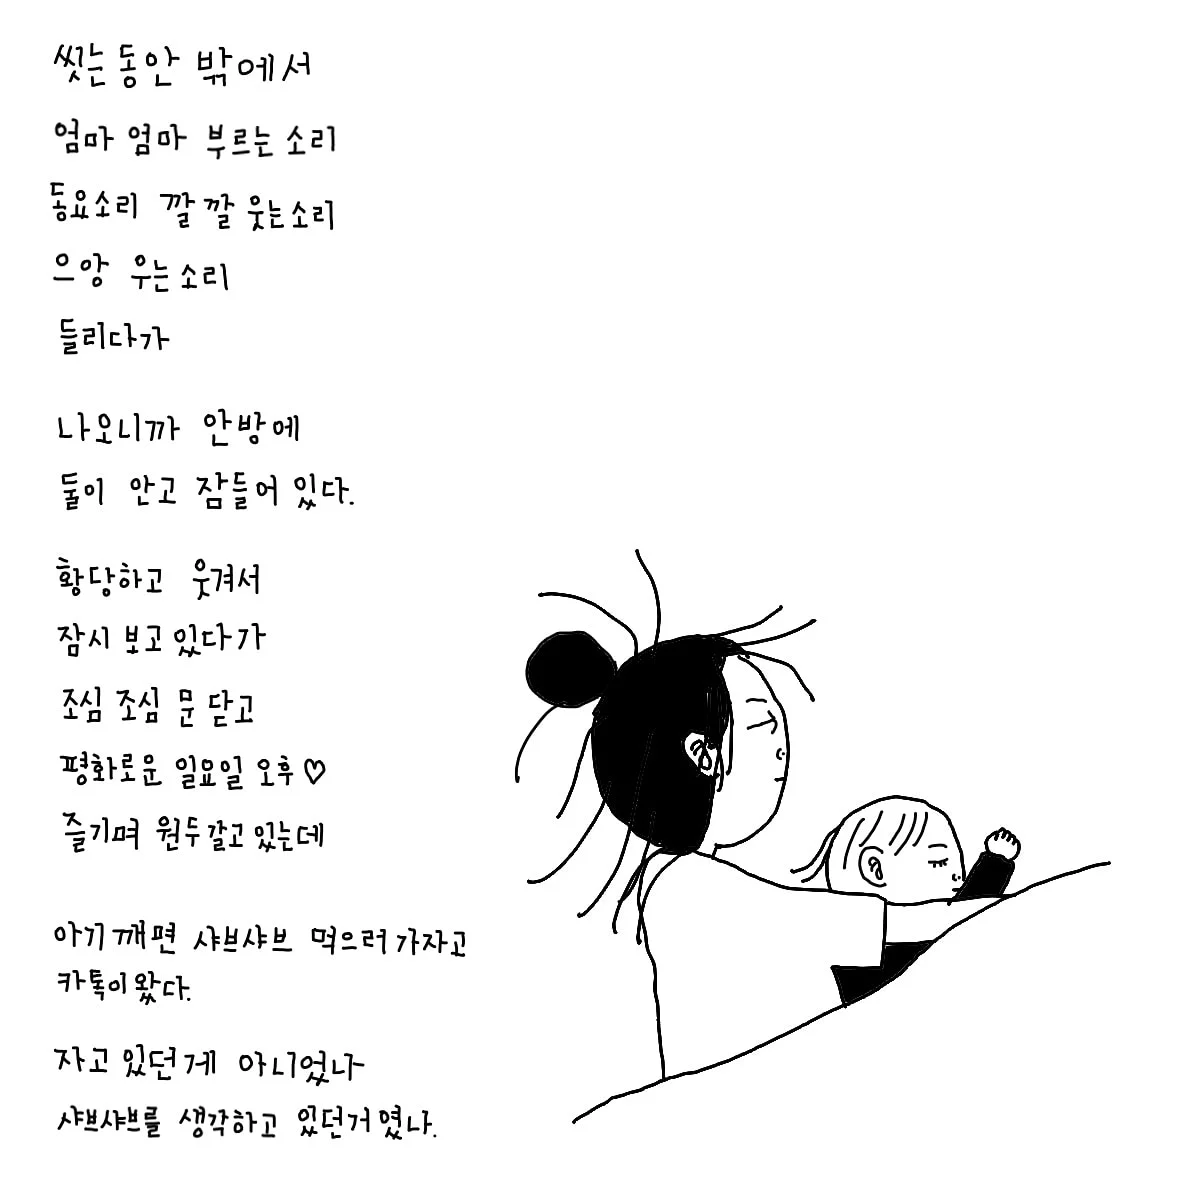 씻는동안 밖에서
엄마 엄마 부르는 소리
동요소리 깔깔 웃는소리
으앙 우는소리
들리다가
나오니까 안방에
둘이 안고 잠들어 있다.
황당하고 웃겨서
잠시 보고있다가
조심 조심 문 닫고
평화로운 일요일 오후♡
즐기며 원두갈고있는데
아기깨면 샤브샤브 먹으러가자고
카톡이왔다.
자고 있던게 아니었나
샤브샤브를 생각하고 있던거였나.